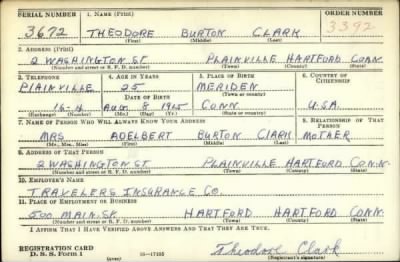 SERIAL NUMBER 1. NAME (Print) ORDER NUMBER
3672 THEODORE BURTON CLARK 3392
(First) (Middle) (Last)
2. ADDRESS (Print)
2 WASHINGTON ST PLAINVILLE HARTFORD CONN.
(Number and street or R. F. D. number) (Town) (County) (State)
3. TELEPHONE 4. AGE IN YEARS 5. PLACE OF BIRTH 6. COUNTRY OF CITIZENSHIP
PLAINVILLE 25 MERIDEN
DATE OF BIRTH (Town or county)
16-4 AUG 8 1915 CONN. U.S.A.
(Exchange) (Number) (Mo.) (Day) (Yr.) (State or country)
7. NAME OF PERSON WHO WILL ALWAYS KNOW YOUR ADDRESS 8. RELATIONSHIP OF THAT PERSON
MRS ADELBERT BURTON CLARK MOTHER
(Mr., Mrs., Miss) (First) (Middle) (Last)
9. ADDRESS OF THAT PERSON
2 WASHINGTON ST. PLAINVILLE HARTFORD CONN.
(Number and street or R. F. D. number) (Town) (County) (State)
10. EMPLOYER'S NAME
TRAVELERS INSURANCE CO.
11. PLACE OF EMPLOYMENT OR BUSINESS
500 MAIN ST. HARTFORD HARTFORD CONN.
(Number and street or R. F. D. number) (Town) (County) (State)
I AFFIRM THAT I HAVE VERIFIED ABOVE ANSWERS AND THAT THEY ARE TRUE.
REGISTRATION CARD
D. S. S. Form 1 (over) 16—17105 Theodore Clark
(Registrant's signature)